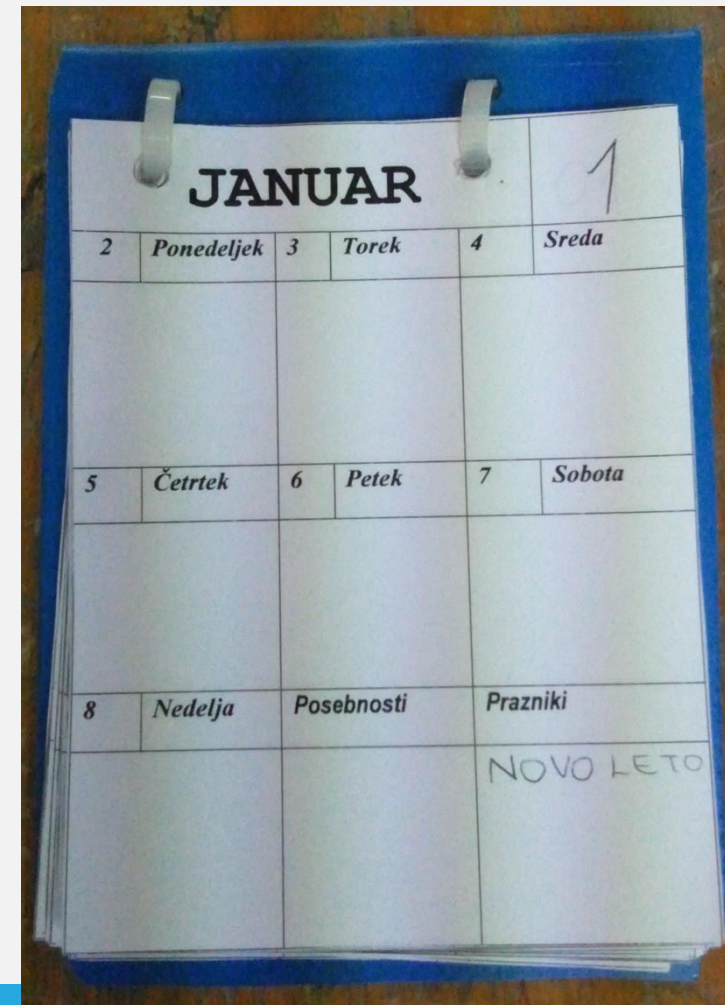 JANUAR 1
2 Ponedeljek 3 Torek 4 Sreda
5 Četrtek 6 Petek 7 Sobota
8 Nedelja Posebnosti Prazniki
NOVO LETO